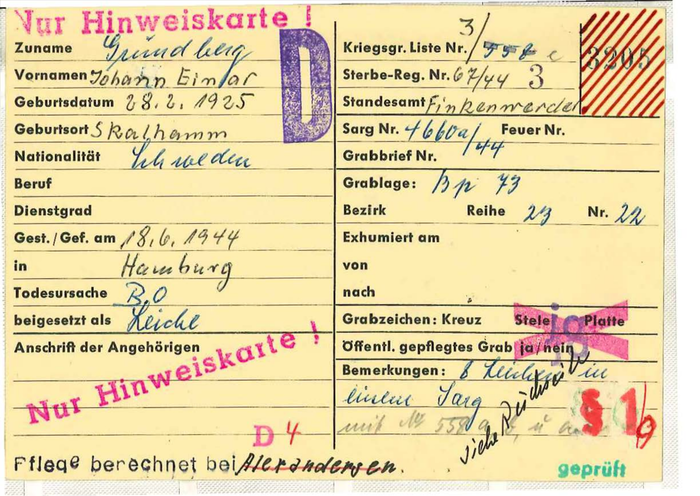 Nur Hinweiskarte !
Zuname Grundberg
Vornamen Johann Einar
Geburtsdatum 28.2.1925
Geburtsort Skalhamm
Nationalität Schweden
Beruf
Dienstgrad
Gest./Gef. am 18.6.1944
in Hamburg
Todesursache B.O
beigesetzt als Leiche
Anschrift der Angehörigen
Nur Hinweiskarte !
D 4
Pflege berechnet bei Alexandersen.
D
Kriegsgr. Liste Nr. 3/558 c
3205
Sterbe-Reg. Nr. 67/44 3
Standesamt Finkenwerder
Sarg Nr. 4660a/44 Feuer Nr.
Grabbrief Nr.
Grablage: Bp 73
Bezirk Reihe 23 Nr. 22
Exhumiert am
von
nach
Grabzeichen: Kreuz Stele Platte
Öffentl. gepflegtes Grab ja/nein
ja
Bemerkungen: 8 Leichen in
einem Sarg
mit No 558 a
siehe
§ 1
geprüft